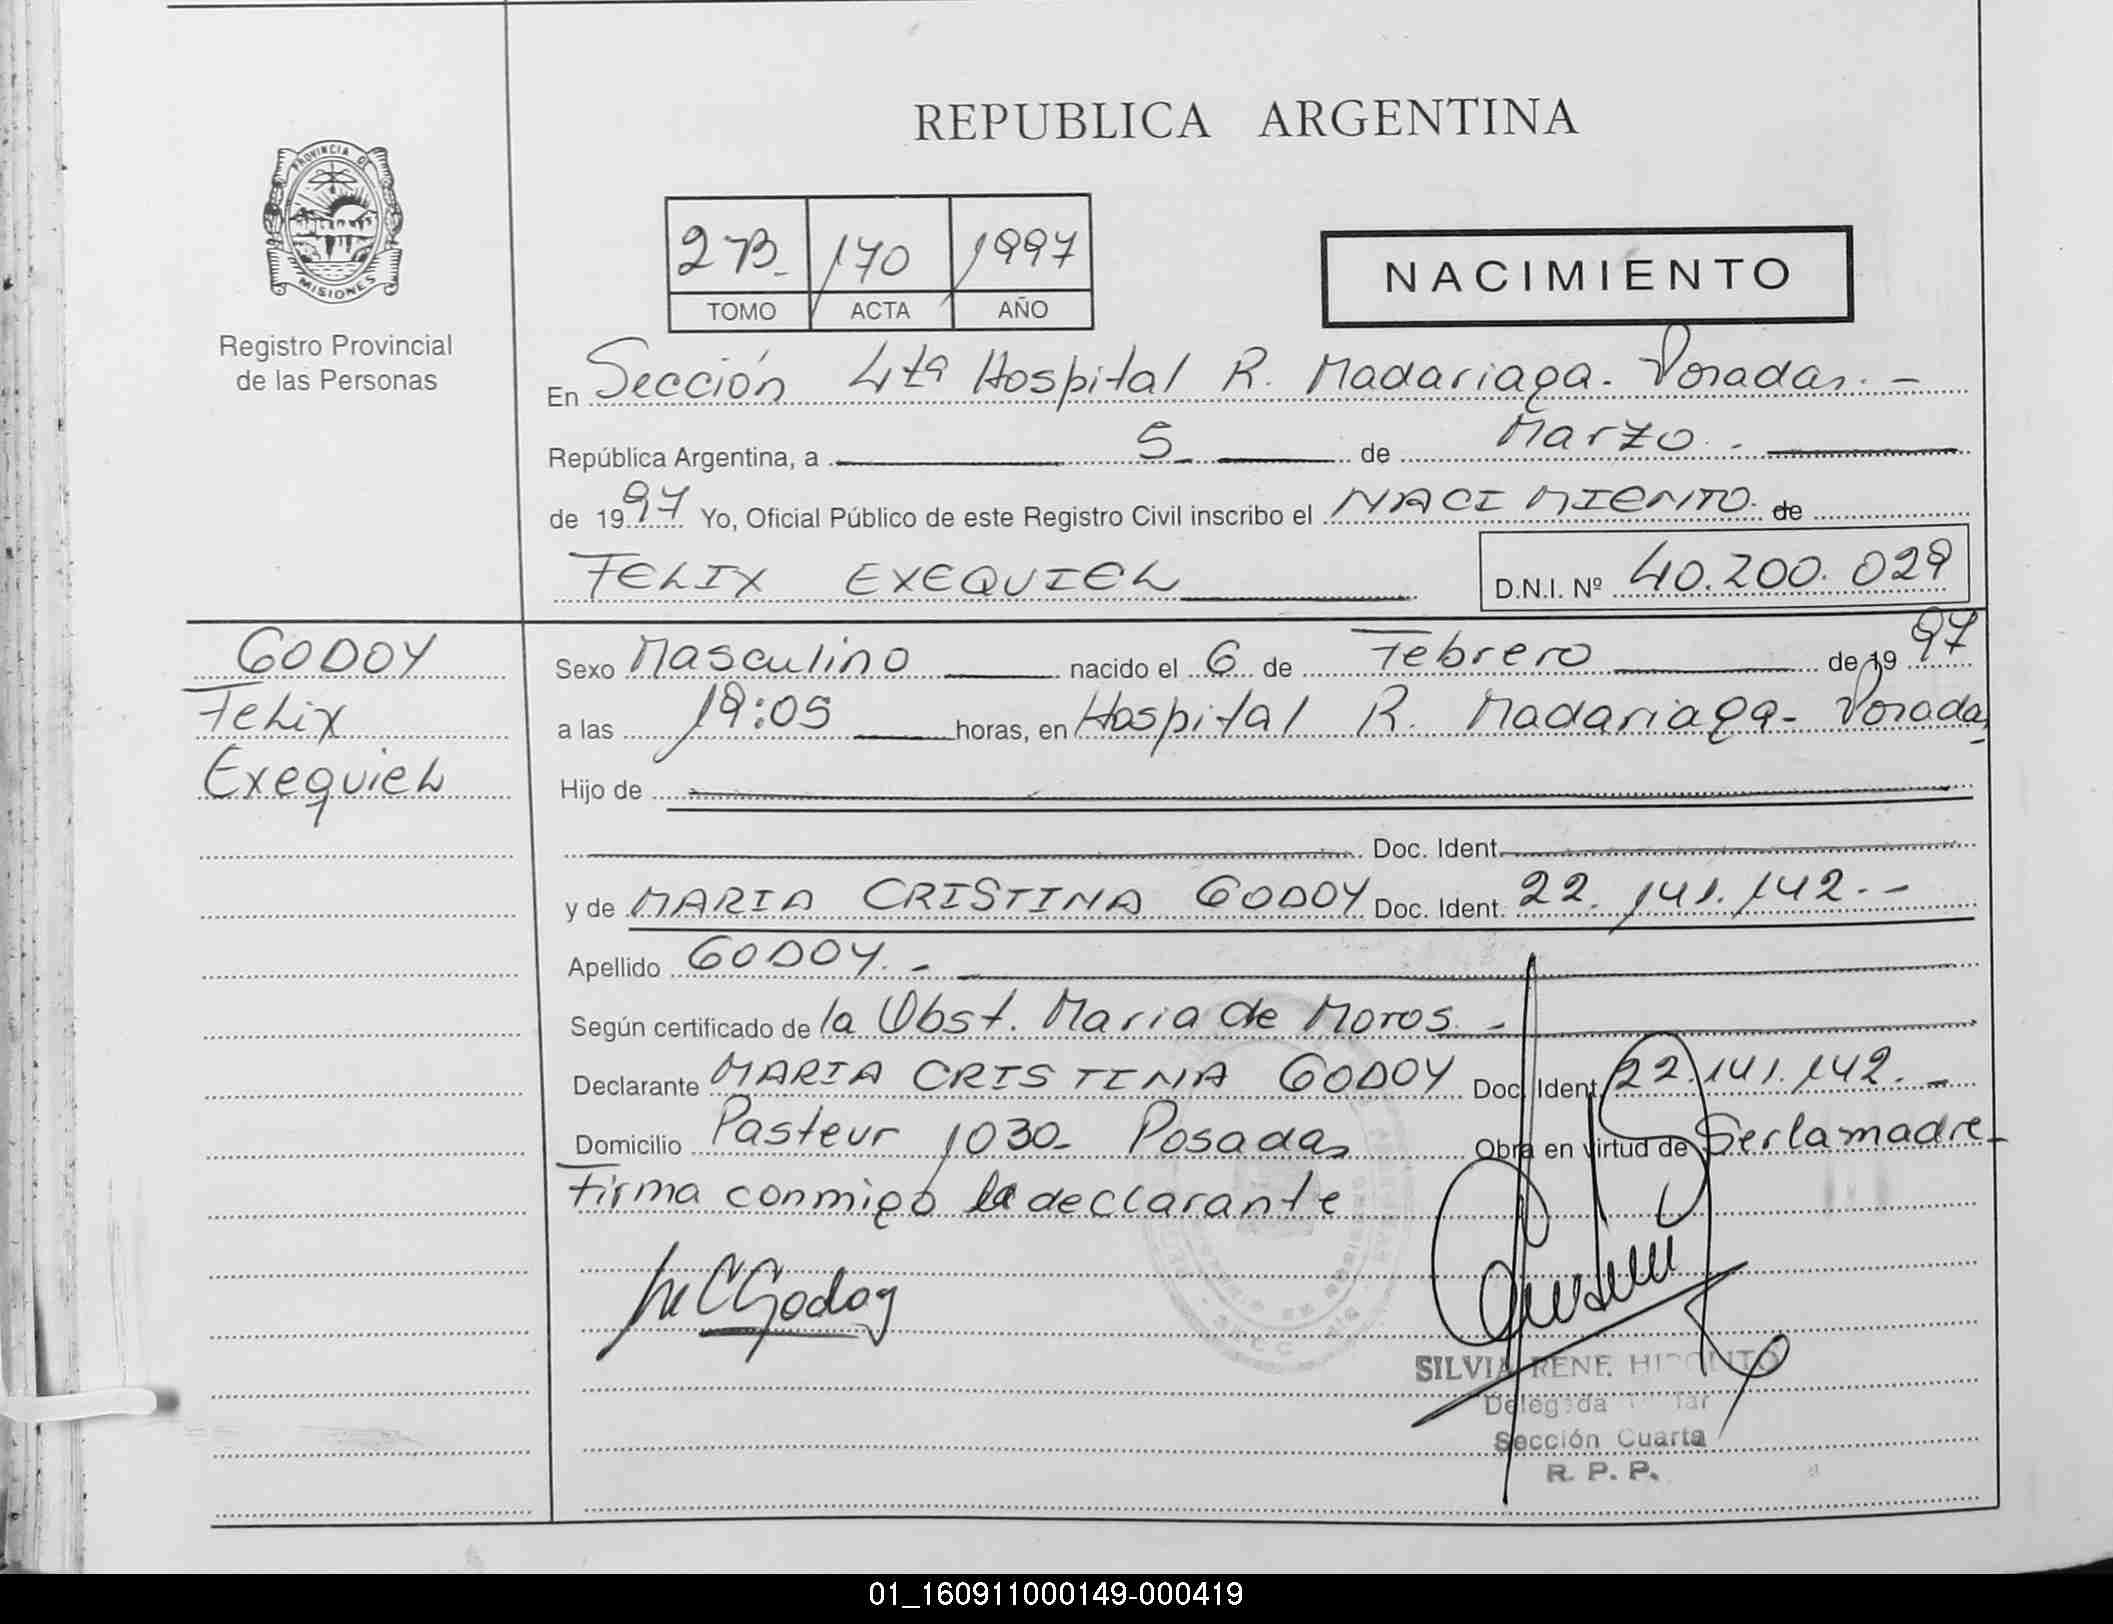 REPUBLICA ARGENTINA
PROVINCIA DE
MISIONES
Registro Provincial
de las Personas
2 B 170 1997
TOMO ACTA AÑO
NACIMIENTO
En Sección 4ta Hospital R. Madariaga. Posadas. -
República Argentina, a 5 de Marzo. -
de 1997 Yo, Oficial Público de este Registro Civil inscribo el NACIMIENTO. de
FELIX EXEQUIEL D.N.I. Nº 40.200.029
GODOY
Felix
Exequiel
Sexo Masculino nacido el 6 de Febrero de 1997
a las 19:05 horas, en Hospital R. Madariaga - Posadas -
Hijo de
Doc. Ident.
y de MARIA CRISTINA GODOY Doc. Ident. 22.141.142. -
Apellido GODOY. -
Según certificado de la Obst. Maria de Moros. -
Declarante MARIA CRISTINA GODOY Doc. Ident. 22.141.142. -
Domicilio Pasteur 1030 - Posadas Obra en virtud de Ser la madre -
Firma conmigo la declarante
M C Godoy
SILVIA RENE HIPOLITO
Delegada
Sección Cuarta
R. P. P.
01_160911000149-000419